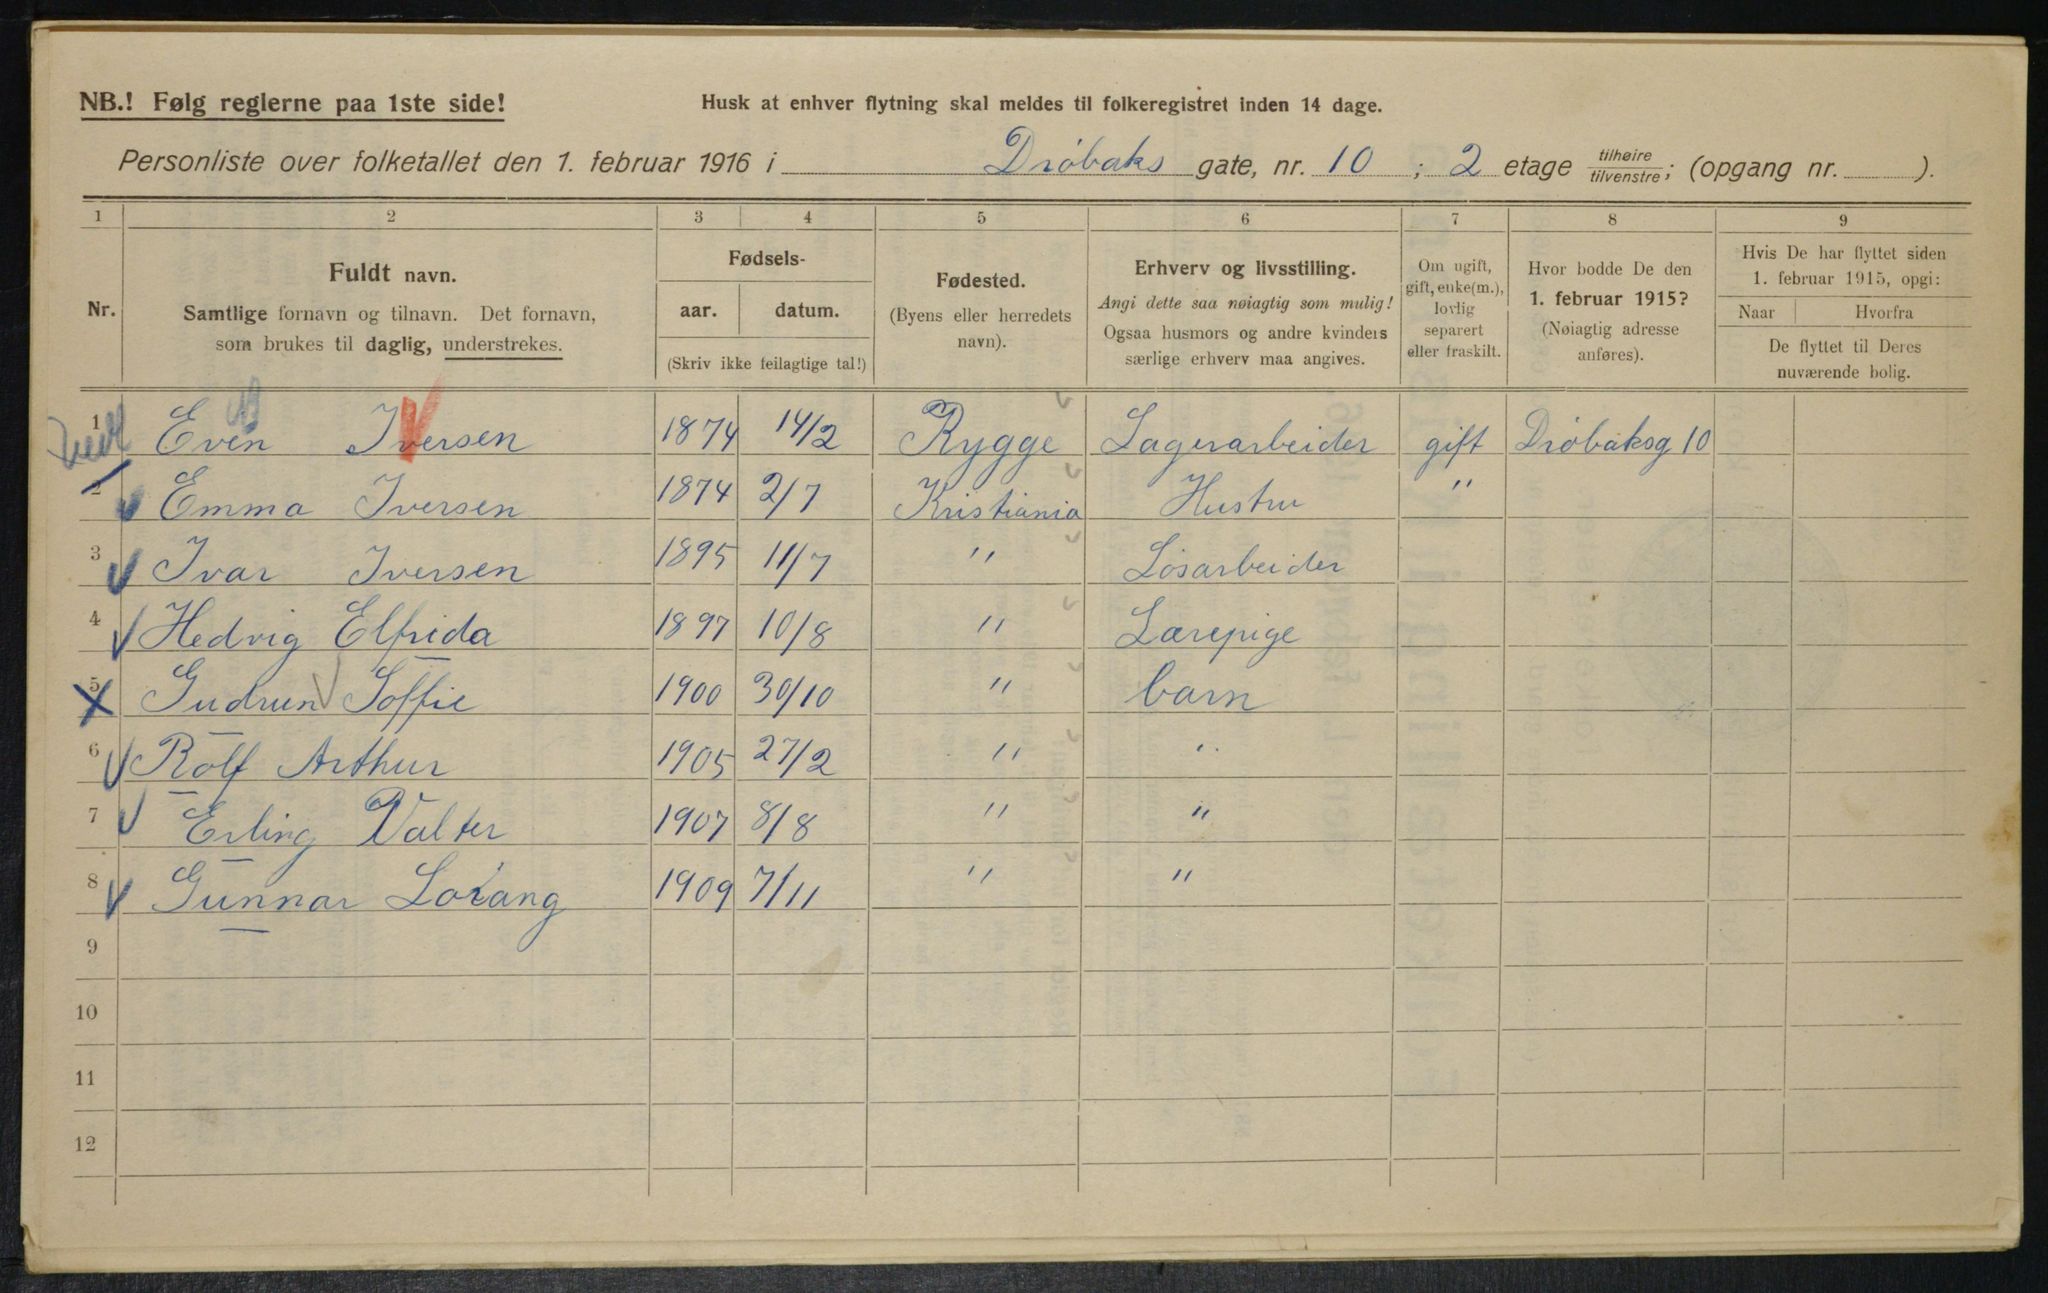 NB.! Følg reglerne paa 1ste side!
Husk at enhver flytning skal meldes til folkeregistret inden 14 dage.
Personliste over folketallet den 1. februar 1916 i Drøbaks gate, nr. 10 ; 2 etage tilhøire/tilvenstre; (opgang nr. ).
1 2 3 4 5 6 7 8 9
Nr.
Fuldt navn.
Samtlige fornavn og tilnavn. Det fornavn,
som brukes til daglig, understrekes.
Fødsels-
aar. datum.
(Skriv ikke feilagtige tal!)
Fødested.
(Byens eller herredets
navn).
Erhverv og livsstilling.
Angi dette saa nøiagtig som mulig!
Ogsaa husmors og andre kvinders
særlige erhverv maa angives.
Om ugift,
gift, enke(m.),
lovlig
separert
eller fraskilt.
Hvor bodde De den
1. februar 1915?
(Nøiagtig adresse
anføres).
Hvis De har flyttet siden
1. februar 1915, opgi:
Naar Hvorfra
De flyttet til Deres
nuværende bolig.
1 Even Iversen 1874 14/2 Rygge Lagerarbeider gift Drøbaksg 10
2 Emma Iversen 1874 2/7 Kristiania Hustru "
3 Ivar Iversen 1895 11/7 " Løsarbeider
4 Hedvig Elfrida 1897 10/8 " Lærepige
5 Gudrun Soffie 1900 30/10 " barn
6 Rolf Arthur 1905 27/2 " "
7 Erling Valter 1907 8/8 " "
8 Gunnar Lorang 1909 7/11 " "
9
10
11
12